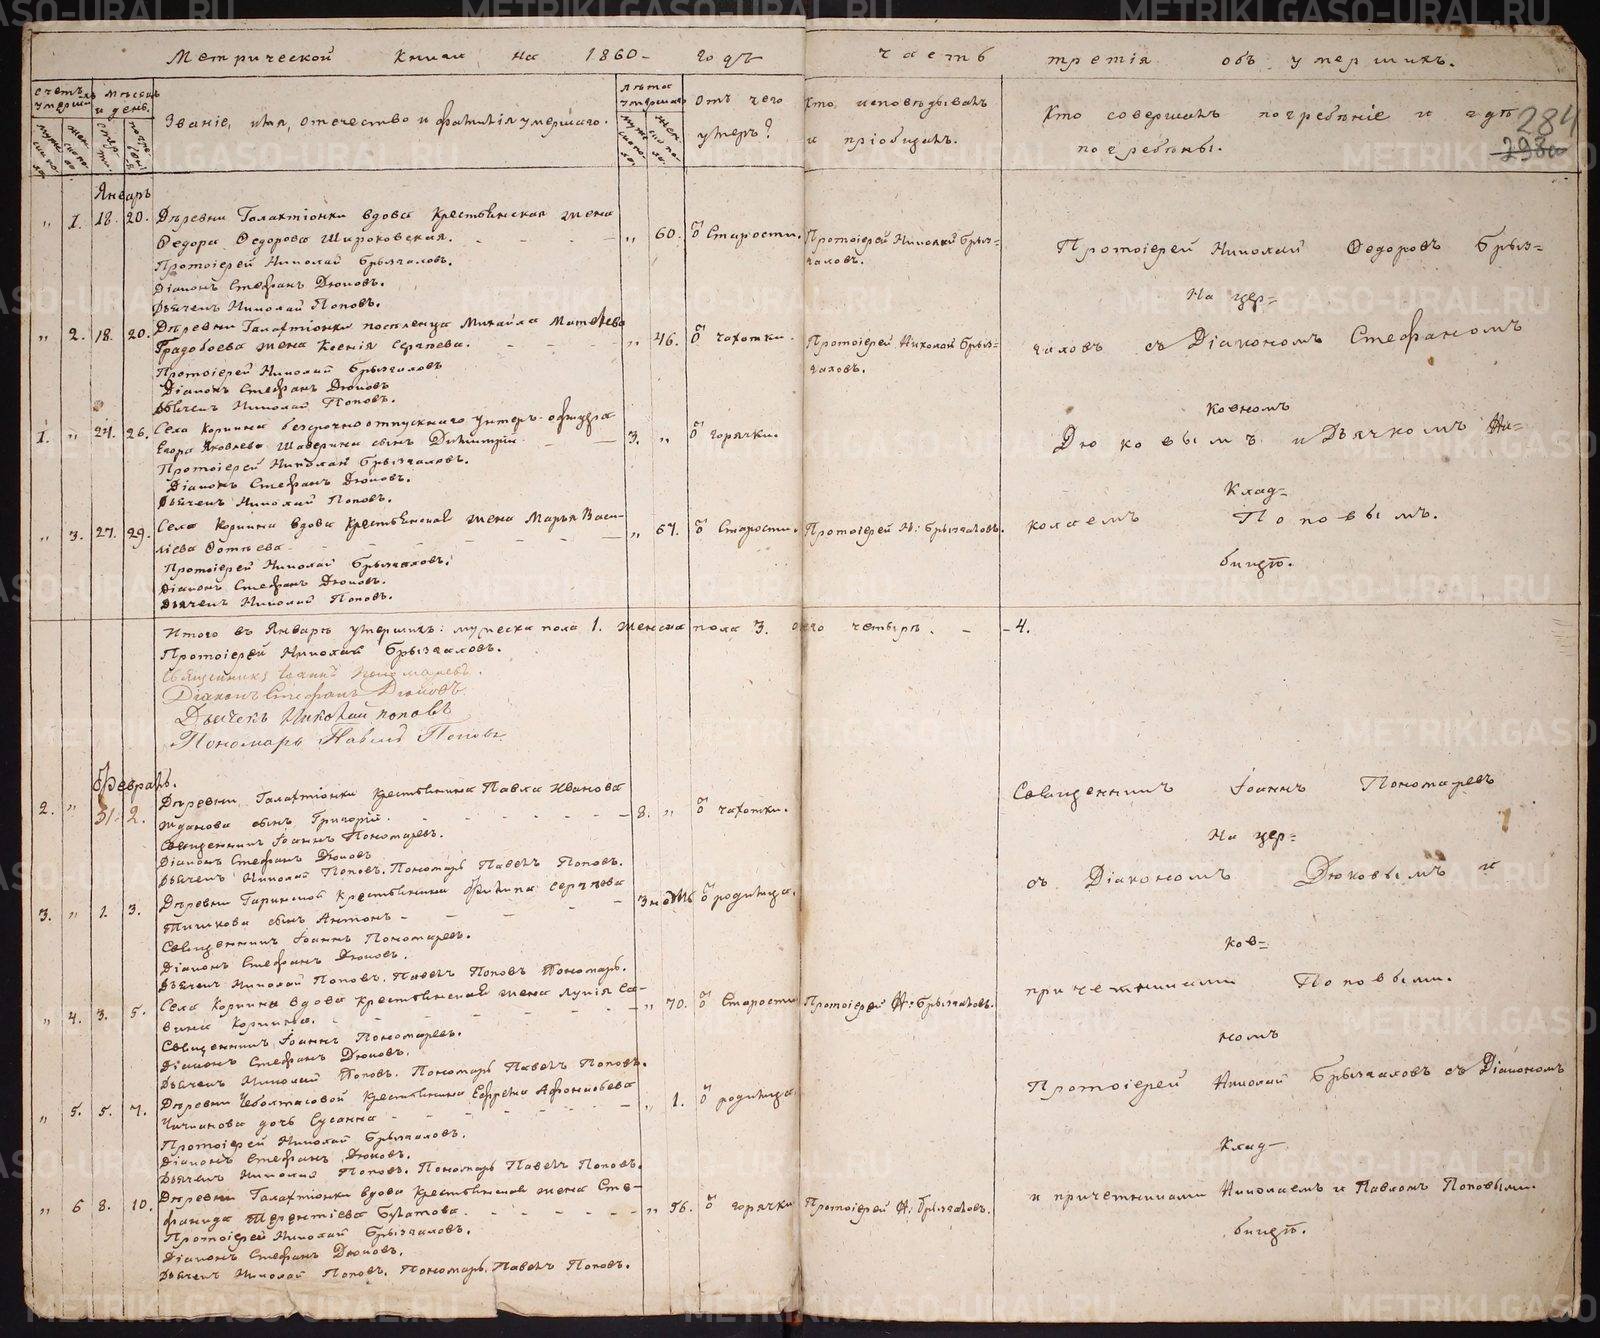 Метрической книги на 1860- годъ
часть третія объ умершихъ.
счетъ умершихъ
Мѣсяцъ и день.
Званіе, имя, отечество и фамилія умершаго.
лѣта умершаго
отъ чего умеръ?
кто исповѣдывалъ и пріобщалъ.
Кто совершалъ погребеніе и гдѣ погребены.
284
293
Январь
„ 1. 18. 20. Деревни Галактіонки вдова крестьянская жена
Ѳедора Ѳедорова Широковская. „ 60. ѿ Старости. Протоіерей Николай Брыз=
галовъ.
Протоіерей Николай Брызгаловъ.
Діаконъ Стефанъ Дюковъ.
Дьячекъ Николай Поповъ.
„ 2. 18. 20. Деревни Галактіонки поселенца Михайла Матѳеева
Градобоева жена Ксенія Сергеева. „ 46. ѿ чахотки. Протоіерей Николай Брыз=
галовъ.
Протоіерей Николай Брызгаловъ
Діаконъ Стефанъ Дюковъ
Дьячекъ Николай Поповъ.
1. „ 24. 26. Села Коркина безсрочноотпускнаго унтеръ-офицера
Егора Яковлева Шаверина сынъ Димитрій 3. „ ѿ горячки.
Протоіерей Николай Брызгаловъ.
Діаконъ Стефанъ Дюковъ.
Дьячекъ Николай Поповъ.
„ 3. 27. 29. Села Коркина вдова крестьянская жена Марья Васи-
лієва Ѳотѣева „ 67. ѿ Старости. Протоіерей Н: Брызгаловъ.
Протоіерей Николай Брызгаловъ.
Діаконъ Стефанъ Дюковъ.
Дьячекъ Николай Поповъ.
Протоіерей Николай Ѳедоровъ Брыз=
На цер=
галовъ съ Діакономъ Стефаномъ
ковномъ
Дюковымъ и Дьячкомъ Ни=
Клад=
колаемъ Поповымъ.
бищѣ.
Итого въ Январѣ умершихъ: мужеска пола 1. женска пола 3. обоего четыре. - -4.
Протоіерей Николай Брызгаловъ.
Священникъ Іоаннъ Пономаревъ.
Діаконъ Стефанъ Дюковъ.
Дьячекъ Николай Поповъ
Пономарь Павелъ Поповъ
Февраль.
2. „ 31. 2. Деревни Галактіонки крестьянина Павла Иванова
Жданова сынъ Григорій. 8. „ ѿ чахотки.
Священникъ Іоаннъ Пономаревъ.
Діаконъ Стефанъ Дюковъ
Дьячекъ Николай Поповъ. Пономарь Павелъ Поповъ.
3. „ 1. 3. Деревни Гаринской крестьянина Филипа Сергѣева
Тишкова сынъ Антонъ - 3 нед. ѿ родимца.
Священникъ Іоаннъ Пономаревъ.
Діаконъ Стефанъ Дюковъ.
Дьячекъ Николай Поповъ. Павелъ Поповъ Пономарь.
„ 4. 3. 5. Села Коркина вдова крестьянская жена Лукія Са-
вина Коркина. „ 70. ѿ Старости Протоіерей Н: Брызгаловъ.
Священникъ Іоаннъ Пономаревъ.
Діаконъ Стефанъ Дюковъ.
Дьячекъ Николай Поповъ. Пономарь Павелъ Поповъ.
„ 5. 5. 7. Деревни Чеболтасовой крестьянина Ефрема Афонасьева
Чичканова дочь Сусанна „ 1. ѿ родимца
Протоіерей Николай Брызгаловъ.
Діаконъ Стефанъ Дюковъ.
Дьячекъ Николай Поповъ. Пономарь Павелъ Поповъ.
„ 6 8. 10. Деревни Галактіонки вдова крестьянская жена Сте-
фанида Терентіева Булатова. „ 56. ѿ горячки Протоіерей Н: Брызгаловъ.
Протоіерей Николай Брызгаловъ.
Діаконъ Стефанъ Дюковъ.
Дьячекъ Николай Поповъ. Пономарь Павелъ Поповъ.
Священникъ Іоаннъ Пономаревъ
На цер=
съ Діакономъ Дюковымъ и
ков=
причетниками Поповыми.
номъ
Протоіерей Николай Брызгаловъ съ Діакономъ
Клад-
и причетниками Николаемъ и Павломъ Поповыми.
бищѣ.
METRIKI.GASO-URAL.RU